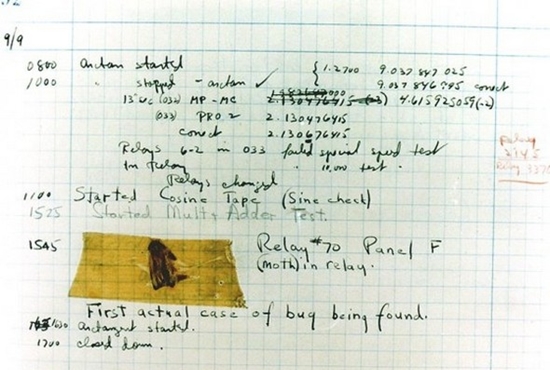 9/9
0800 Antan started
1000 " stopped - antan ✓ { 1.2700 9.037 847 025
9.037 846 995 correct
13"uc (032) MP - MC 2.130476415 4.615925059(-2)
(033) PRO 2 2.130476415
correct 2.130676415
Relays 6-2 in 033 failed special speed test
in relay " 10,000 test.
Relays changed
Relay
2145
Relay 3370
1100 Started Cosine Tape (Sine check)
1525 Started Mult + Adder Test.
1545 Relay #70 Panel F
(moth) in relay.
First actual case of bug being found.
1630 Antangent started.
1700 closed down.